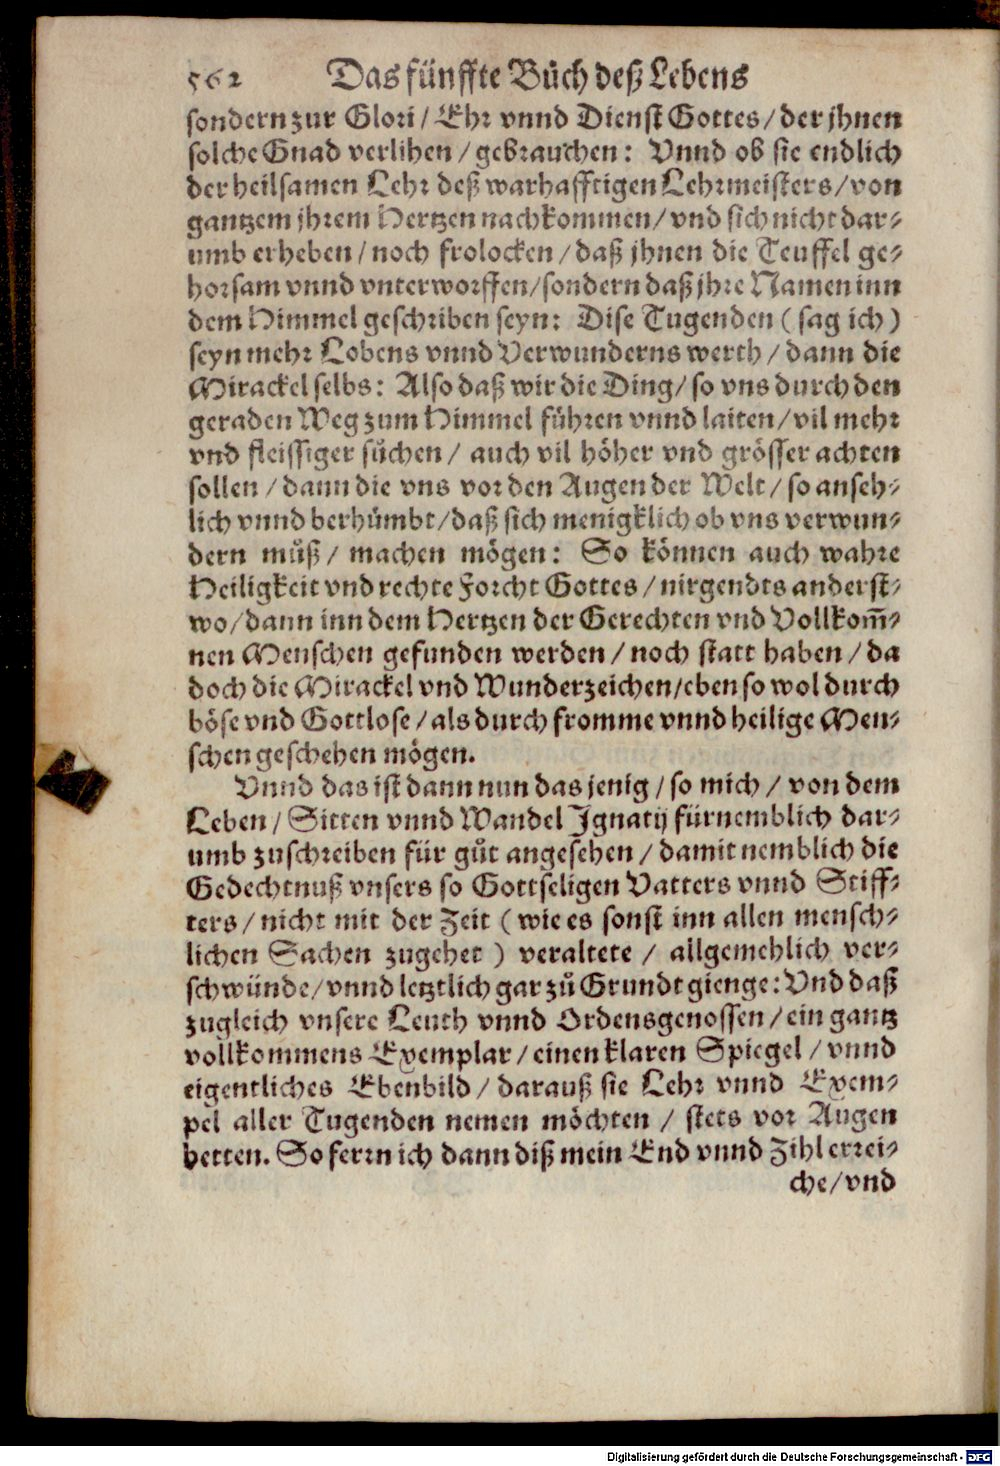 562 Das fünffte Bůch deß Lebens
sondern zur Glori / Ehr vnnd Dienst Gottes / der jhnen
solche Gnad verlihen / gebrauchen: Vnnd ob sie endlich
der heilsamen Lehr deß warhafftigen Lehrmeisters / von
gantzem jhrem Hertzen nachkommen / vnd sich nicht dar-
umb erheben / noch frolocken / daß jhnen die Teuffel ge-
horsam vnnd vnterworffen / sondern daß jhre Namen inn
dem Himmel geschriben seyn: Dise Tugenden ( sag ich )
seyn mehr Lobens vnnd Verwunderns werth / dann die
Mirackel selbs: Also daß wir die Ding / so vns durch den
geraden Weg zum Himmel führen vnnd laiten / vil mehr
vnd fleissiger sůchen / auch vil höher vnd grösser achten
sollen / dann die vns vor den Augen der Welt / so anseh-
lich vnnd berhümbt / daß sich menigklich ob vns verwun-
dern můß / machen mögen: So können auch wahre
Heiligkeit vnd rechte Forcht Gottes / nirgendts anderst-
wo / dann inn dem Hertzen der Gerechten vnd Vollkom̃-
nen Menschen gefunden werden / noch statt haben / da
doch die Mirackel vnd Wunderzeichen / eben so wol durch
böse vnd Gottlose / als durch fromme vnnd heilige Men-
schen geschehen mögen.
Vnnd das ist dann nun das jenig / so mich / von dem
Leben / Sitten vnnd Wandel Ignatij fürnemblich dar-
umb zuschreiben für gůt angesehen / damit nemblich die
Gedechtnuß vnsers so Gottseligen Vatters vnnd Stiff-
ters / nicht mit der Zeit ( wie es sonst inn allen mensch-
lichen Sachen zugehet ) veraltete / allgemehlich ver-
schwünde / vnnd letztlich gar zů Grundt gienge: Vnd daß
zugleich vnsere Leuth vnnd Ordensgenossen / ein gantz
vollkommens Exemplar / einen klaren Spiegel / vnnd
eigentliches Ebenbild / darauß sie Lehr vnnd Exem-
pel aller Tugenden nemen möchten / stets vor Augen
hetten. So ferrn ich dann diß mein End vnnd Zihl errei-
che / vnd
Digitalisierung gefördert durch die Deutsche Forschungsgemeinschaft - DFG